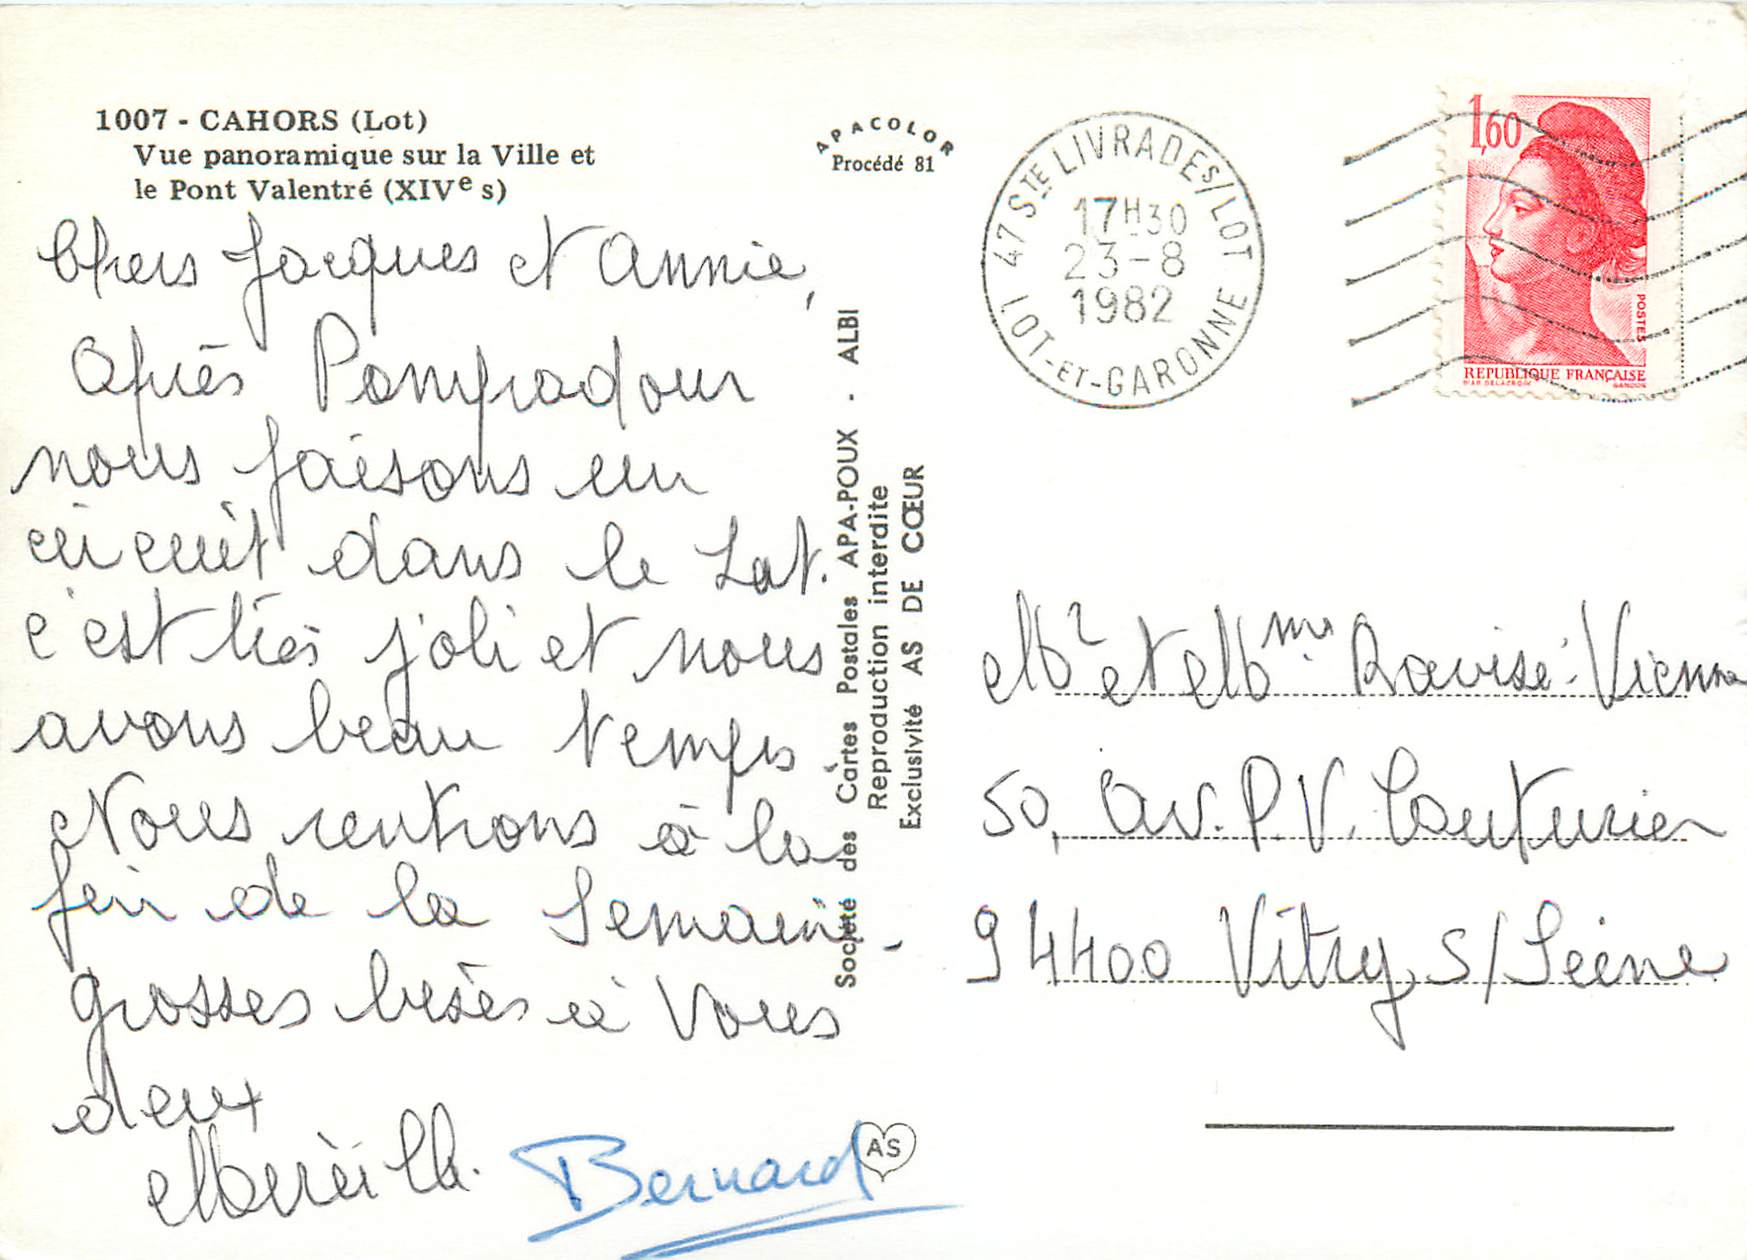 1007 - CAHORS (Lot)
Vue panoramique sur la Ville et
le Pont Valentré (XIVe s)
Chers Jacques et Annie,
Après Pompadour
nous faisons un
circuit dans le Lot.
c'est très joli et nous
avons beau temps.
Nous rentrons à la
fin de la Semaine.
grosses bises à Vous
deux
Mireille.
Bernard
APACOLOR
Procédé 81
Société des Cartes Postales APA-POUX . ALBI
Reproduction interdite
Exclusivité AS DE CŒUR
AS
47 STE LIVRADES/LOT
17H30
23-8
1982
LOT-ET-GARONNE
1,60
POSTES
REPUBLIQUE FRANÇAISE
D'AP. DELACROIX GANDON
Mr et Mme Ravisé-Vienne
50, av. P.V. Couturier
94400 Vitry s/Seine